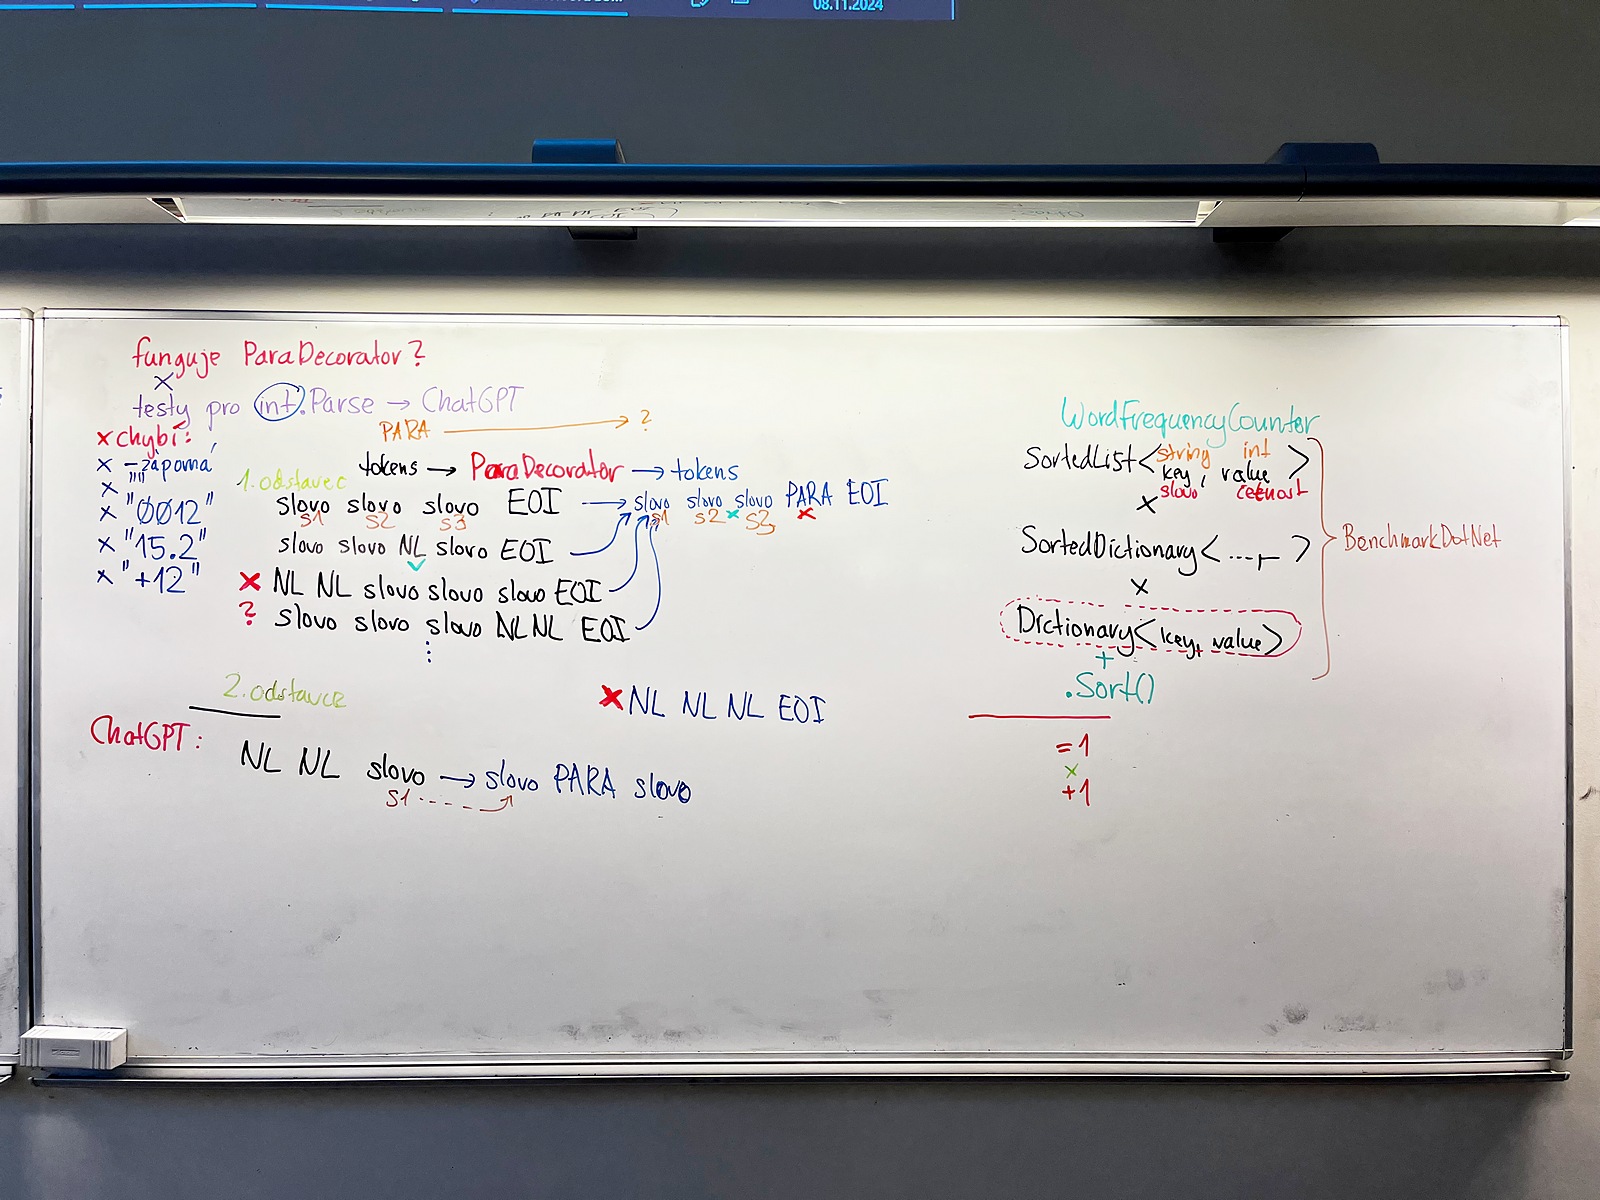 08.11.2024
funguje ParaDecorator?
×
testy pro int.Parse → ChatGPT
× chybí:
× -záporná
× ""
× "0012"
× "15.2"
× "+12"
PARA → ?
tokens → ParaDecorator → tokens
1. odstavec
slovo slovo slovo EOI → slovo slovo slovo PARA EOI
s1 s2 s3 s1 s2 × s3 ×
slovo slovo NL slovo EOI
× NL NL slovo slovo slovo EOI
? slovo slovo slovo NL NL EOI
⋮
2. odstavce
× NL NL NL EOI
ChatGPT:
NL NL slovo → slovo PARA slovo
s1
WordFrequencyCounter
string int
SortedList<key, value>
slovo četnost
×
SortedDictionary<...,->
×
Dictionary<key, value>
+
.Sort()
BenchmarkDotNet
=1
×
+1